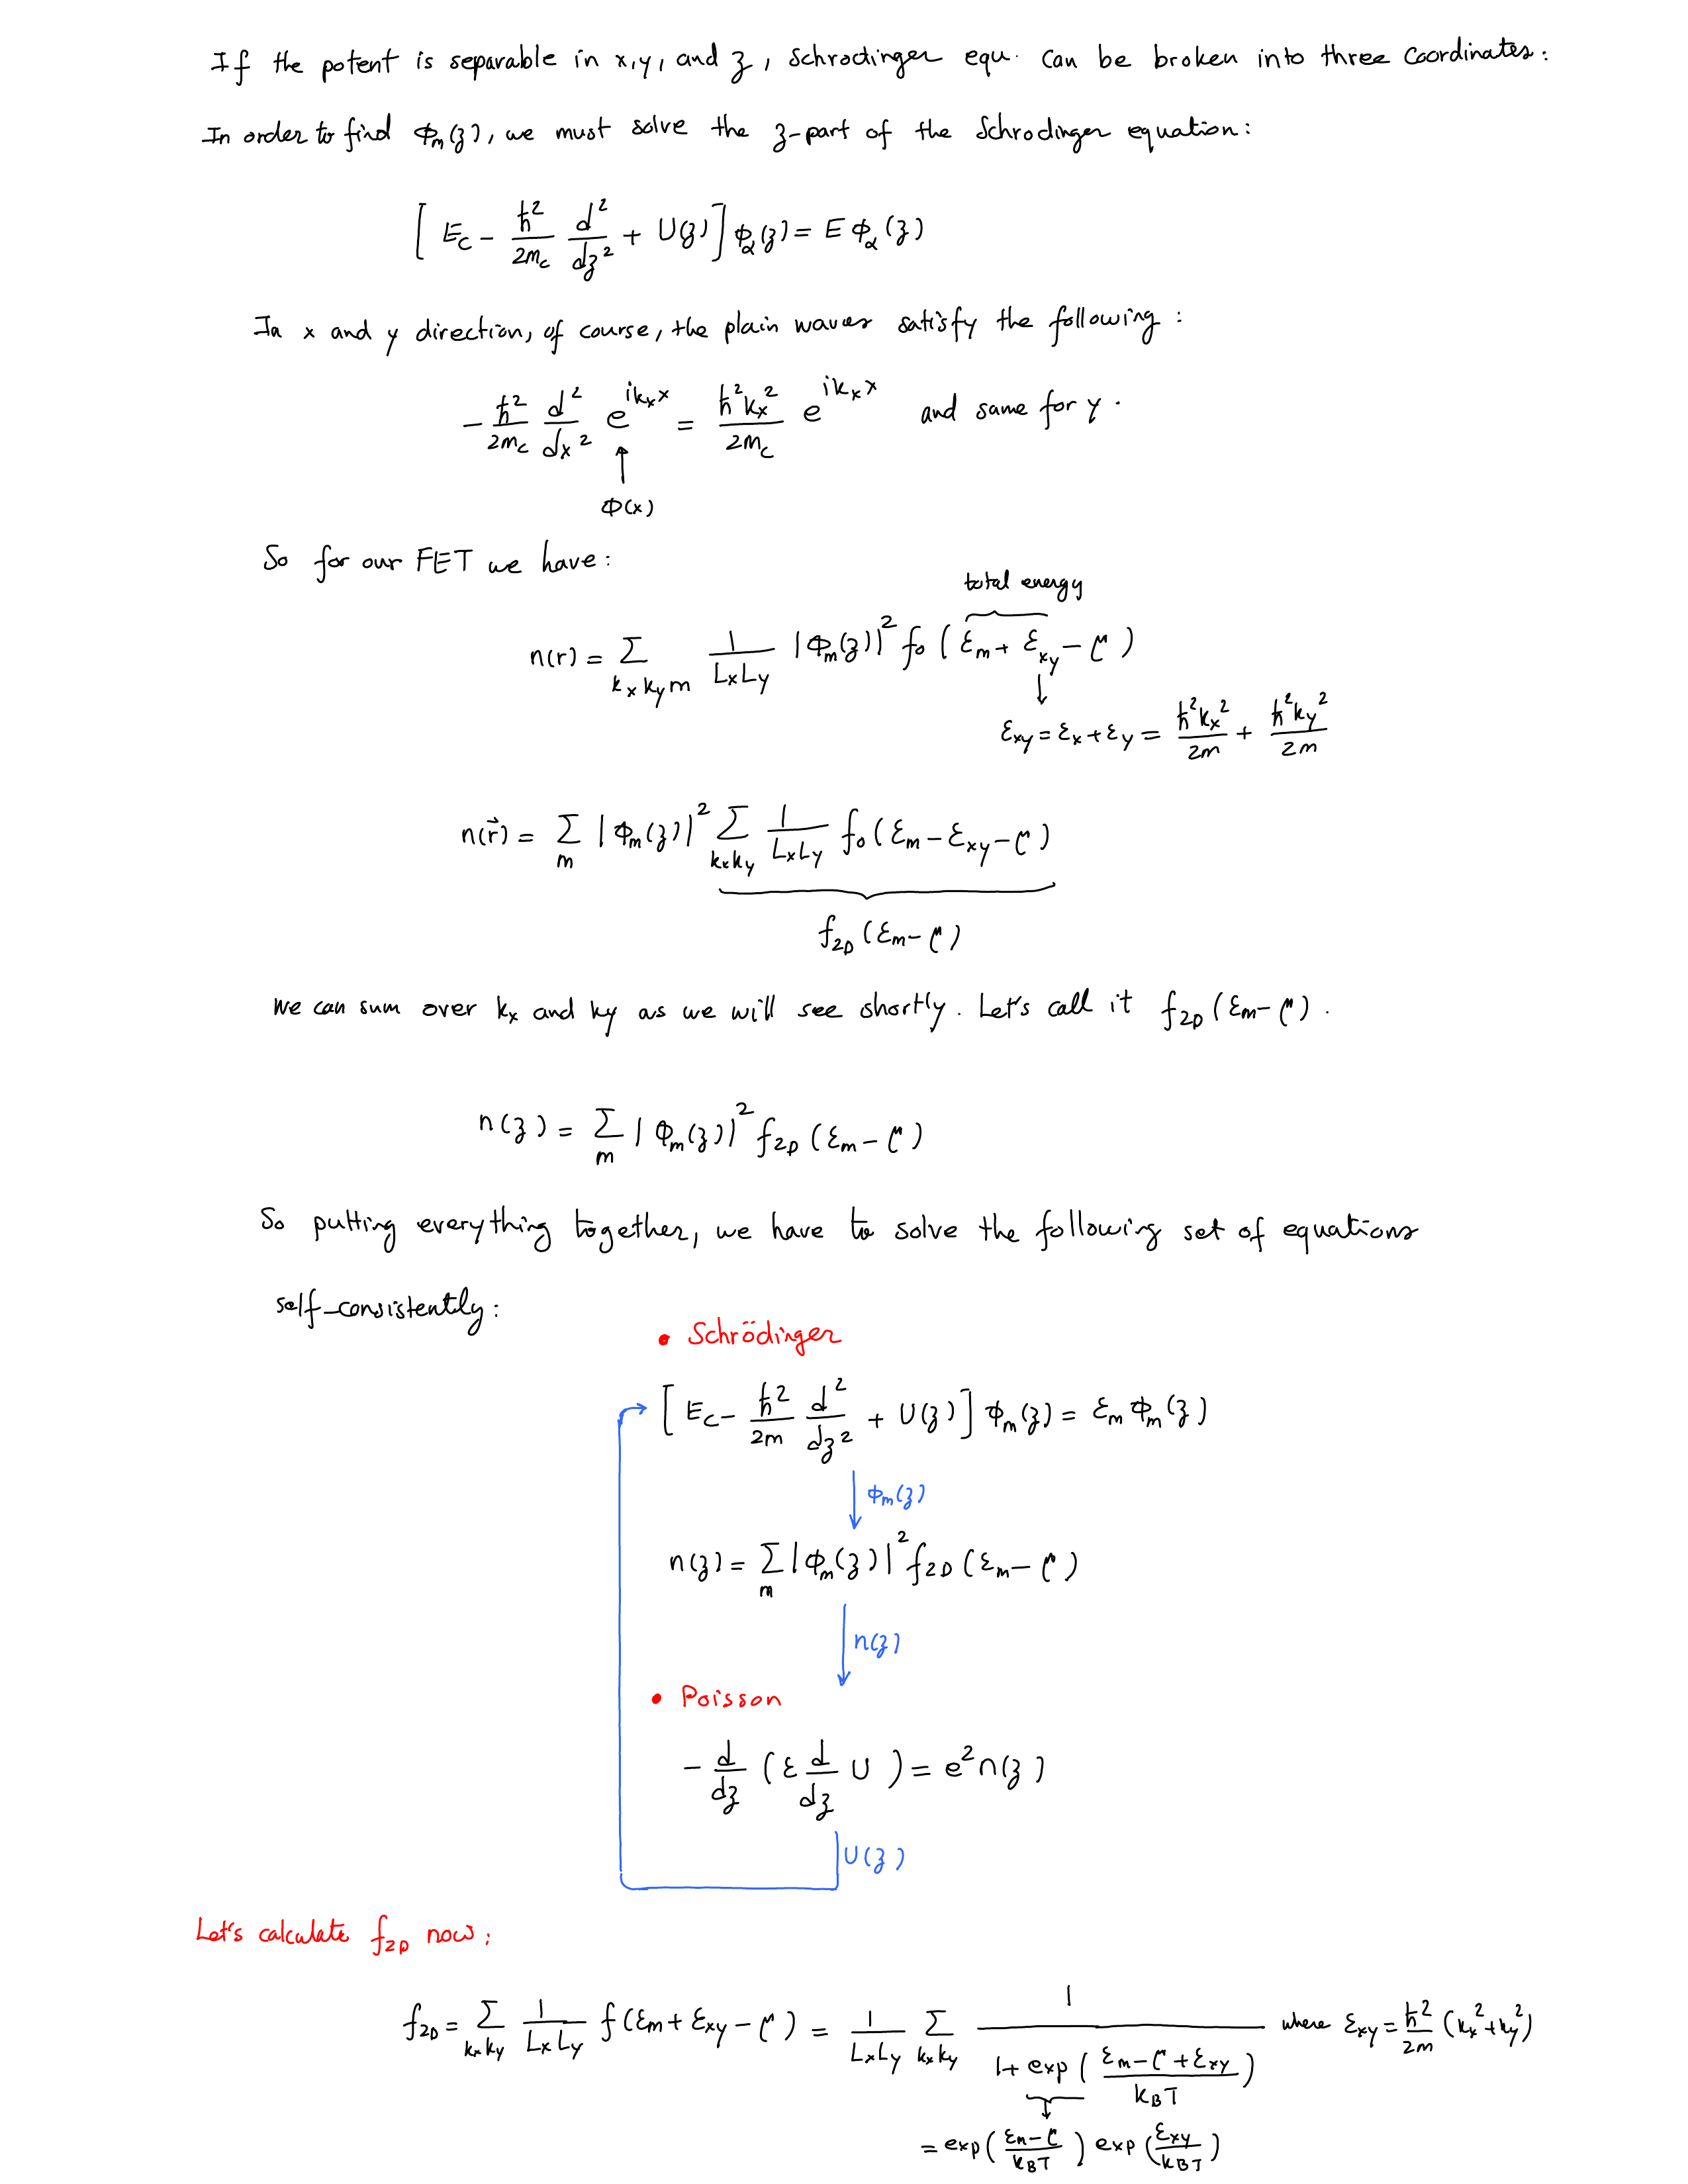 If the potent is separable in x,y, and z, Schrodinger equ. can be broken into three coordinates:
In order to find ϕm(z), we must solve the z-part of the Schrodinger equation:
[ Ec - ħ²/2mc d²/dz² + U(z) ] ϕα(z) = E ϕα(z)
In x and y direction, of course, the plain waves satisfy the following :
- ħ²/2mc d²/dx² e^{ikxx} = ħ²kx²/2mc e^{ikxx} and same for y.
↑
Φ(x)
So for our FET we have:
total energy
n(r) = Σ_{kx ky m} 1/LxLy |ϕm(z)|² f0 ( εm + εxy - μ )
↓
εxy = εx + εy = ħ²kx²/2m + ħ²ky²/2m
n(r⃗) = Σ_m |ϕm(z)|² Σ_{kxky} 1/LxLy f0 ( εm - εxy - μ )
f2D (εm - μ)
We can sum over kx and ky as we will see shortly. Let's call it f2D (εm - μ).
n(z) = Σ_m |ϕm(z)|² f2D (εm - μ)
So putting everything together, we have to solve the following set of equations
self-consistently:
• Schrödinger
[ Ec - ħ²/2m d²/dz² + U(z) ] ϕm(z) = εm ϕm(z)
↓ ϕm(z)
n(z) = Σ_m |ϕm(z)|² f2D (εm - μ)
↓ n(z)
• Poisson
- d/dz ( ε d/dz U ) = e² n(z)
U(z)
Let's calculate f2D now:
f2D = Σ_{kxky} 1/LxLy f(εm + εxy - μ) = 1/LxLy Σ_{kxky} 1/(1+ exp( (εm - μ + εxy)/kBT )) where εxy = ħ²/2m (kx² + ky²)
= exp( (εm - μ)/kBT ) exp( εxy/kBT )